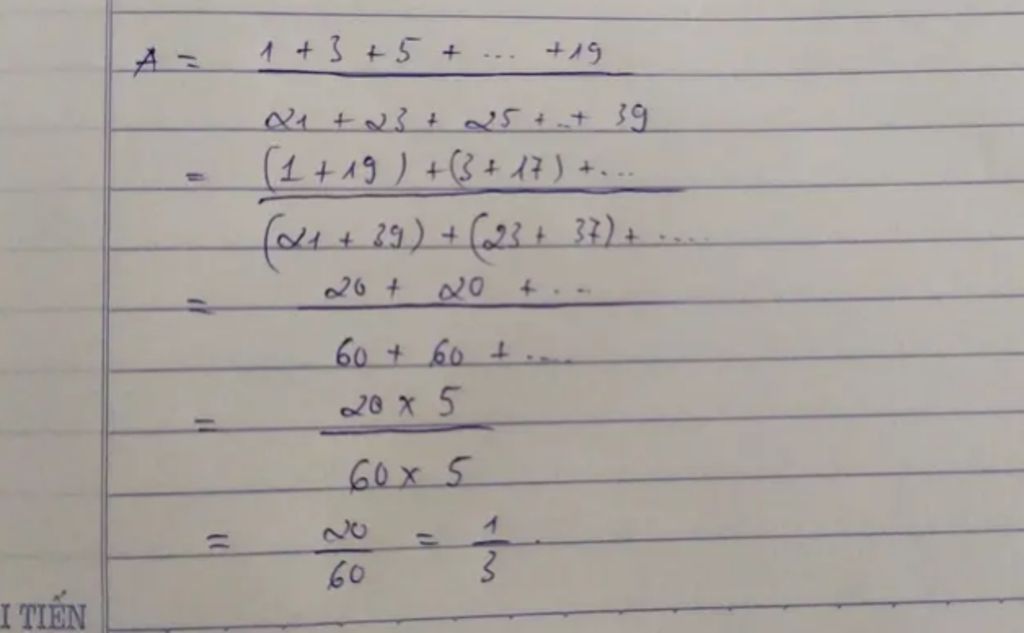 A = 1 + 3 + 5 + ... + 19
21 + 23 + 25 + .. + 39
= (1 + 19) + (3 + 17) + ...
(21 + 39) + (23 + 37) + .....
= 20 + 20 + ...
60 + 60 + .....
= 20 x 5
60 x 5
= 20 = 1 .
60 3
I TIẾN